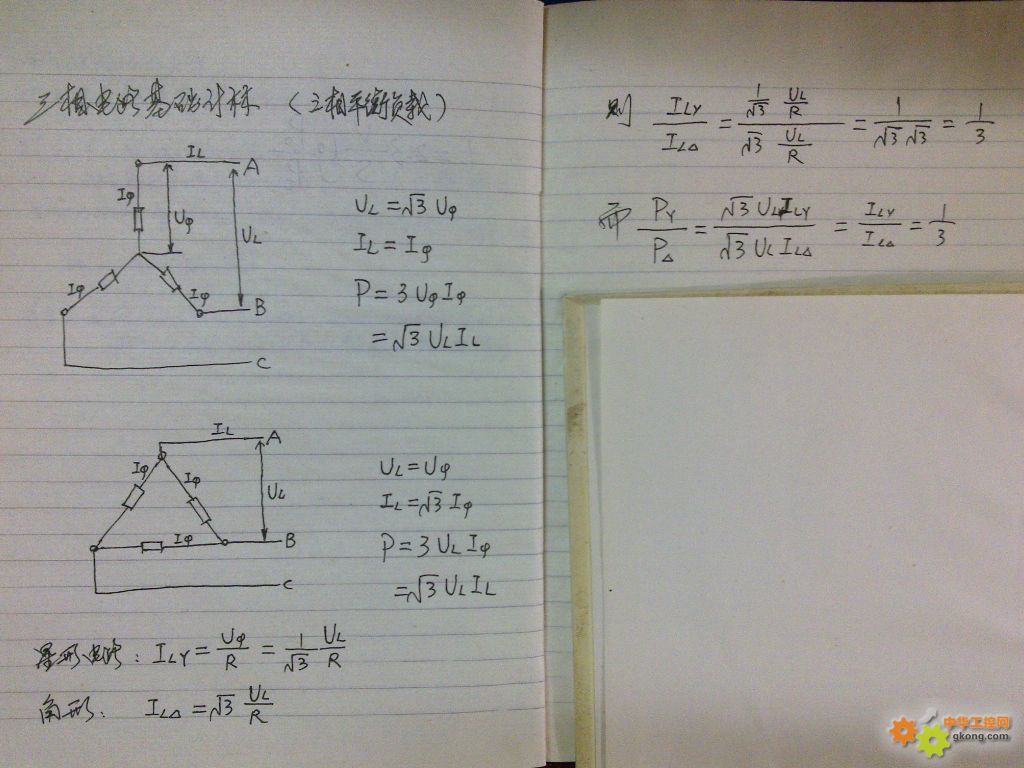 三相电路基础计标 (三相平衡负载)
IL A
Iφ Uφ UL
Iφ Iφ B
C
UL=√3 Uφ
IL=Iφ
P=3UφIφ
=√3 ULIL
IL A
Iφ Iφ UL
Iφ B
C
UL=Uφ
IL=√3 Iφ
P=3ULIφ
=√3 ULIL
星形电路: ILY=Uφ/R=1/√3 UL/R
角形: IL△=√3 UL/R
则 ILY/IL△=(1/√3 UL/R)/(√3 UL/R)=1/(√3 √3)=1/3
而 PY/P△=√3 ULILY/√3 ULIL△=ILY/IL△=1/3
中华工控网
gkong.com